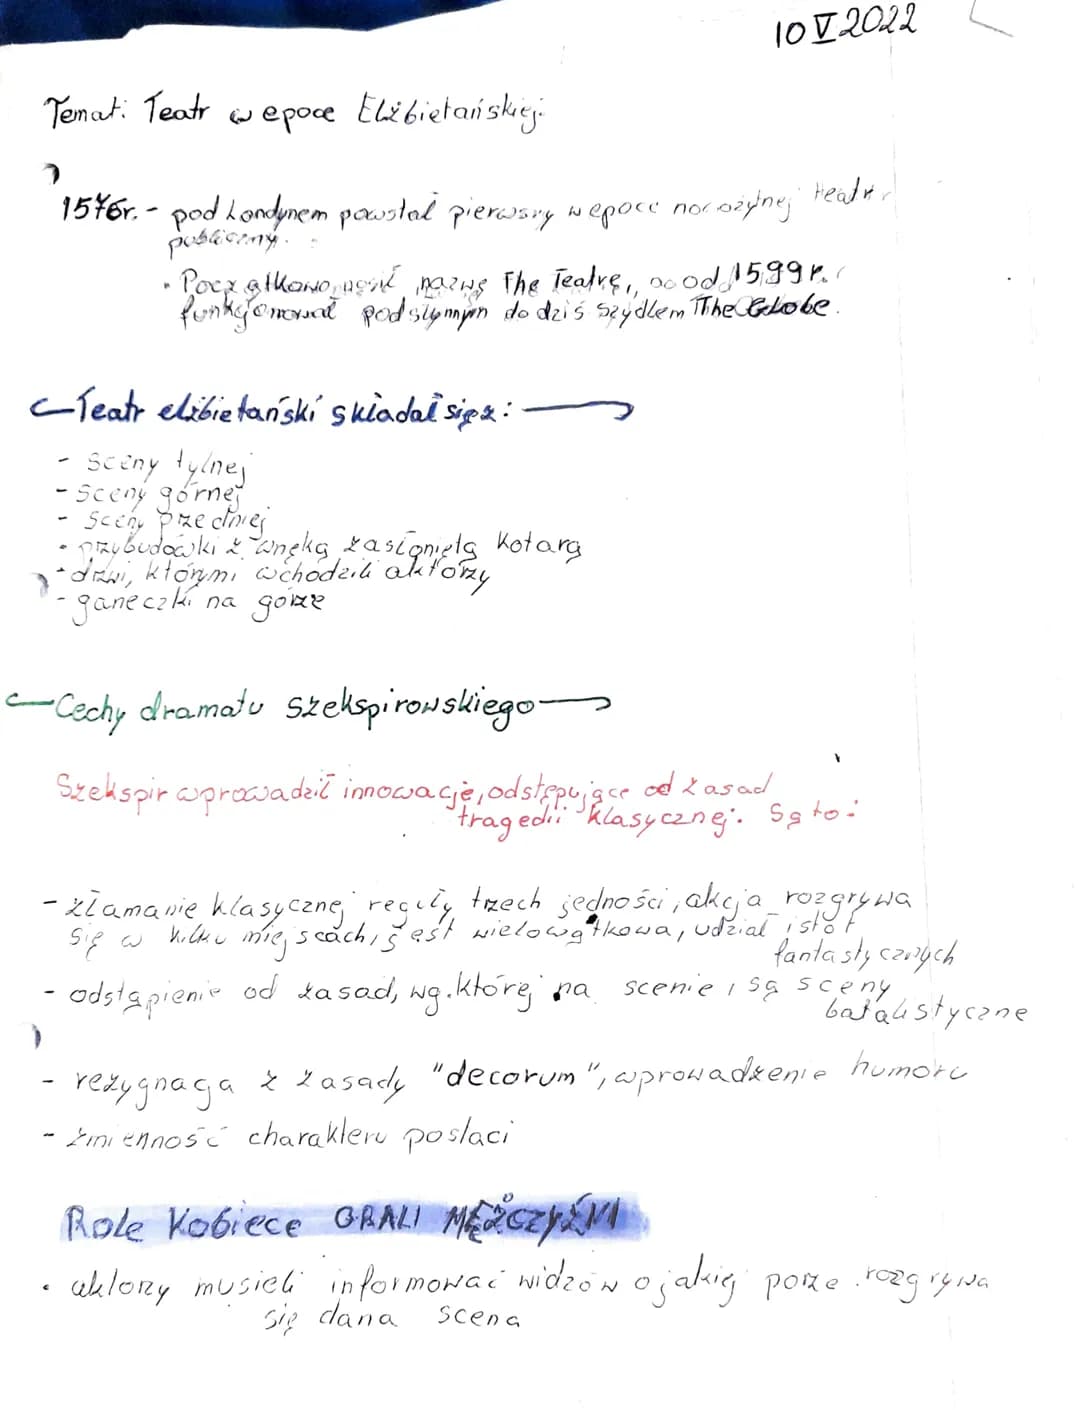 10 V 2022
Temat: Teatr w epoce Elżbietańskiej.
1576r. - pod Londynem powstał pierwszy w epoce nowożytnej teatr
publiczny.
• Początkowo nosił nazwę The Teatre, od 1599 r.
funkcjonował pod słynnym do dziś szydłem The Globe.
Teatr elżbietański składał się z:
- sceny tylnej
- sceny górnej
- sceny przedniej
- przybudówki z wnęką zasłoniętą Kotarą
- drzwi, którymi wchodzili aktorzy
- ganeczki na górze
Cechy dramatu szekspirowskiego
Szekspir wprowadził innowacje, odstępujące od zasad
tragedii klasycznej. Są to:
- złamanie klasycznej reguły trzech jedności, akcja rozgrywa
się w kilku miejscach, jest wielowątkowa, udział istot
fantastycznych
- odstąpienie od zasad, wg. której na scenie, są sceny
batalistyczne
- rezygnacja z zasady "decorum", wprowadzenie humoru
- zmienność charakteru postaci
Role Kobiece GRALI MĘŻCZYŹNI
• aktorzy musieli informować widzów o jakiej porze rozgrywa
się dana scena